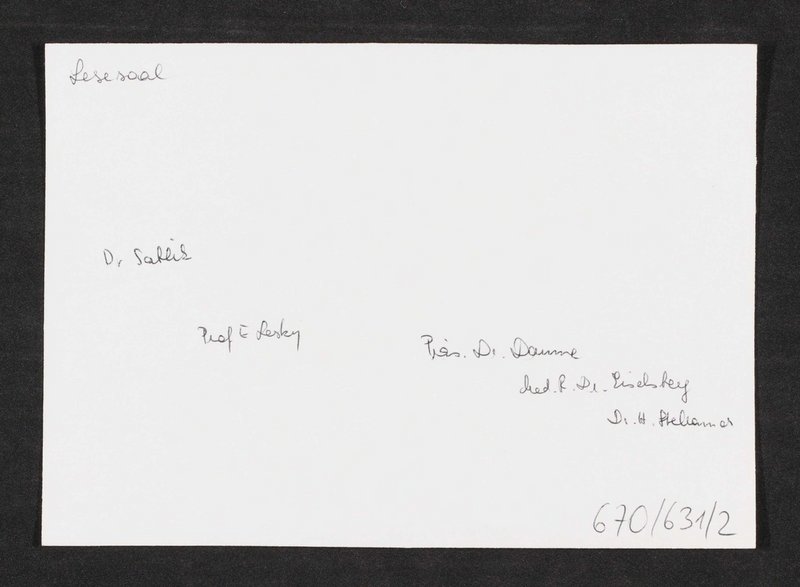 Lesesaal
Dr Sablik
Prof E Lesky
Präs. Dr. Daume
Med. R. Dr. Eiselsberg
Dr. H. Stellamor
670/631/2